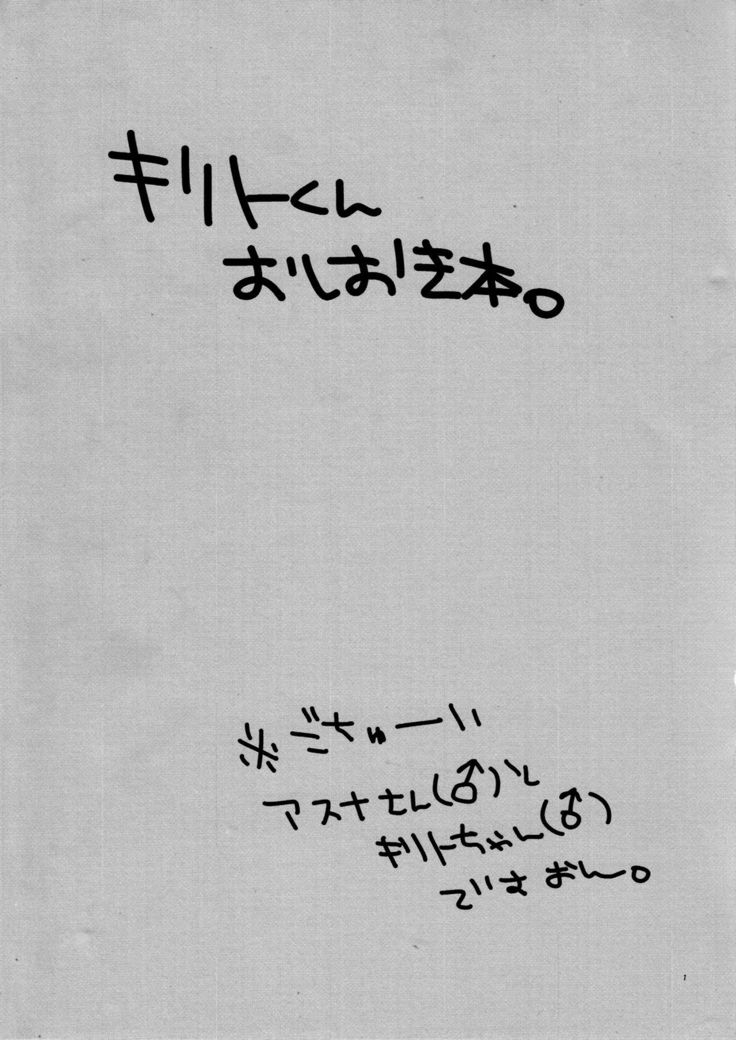 キリトくん
おしおき本。
※ごちゅーい
アスナさん(♂)と
キリトちゃん(♂)
でいすおん。
1